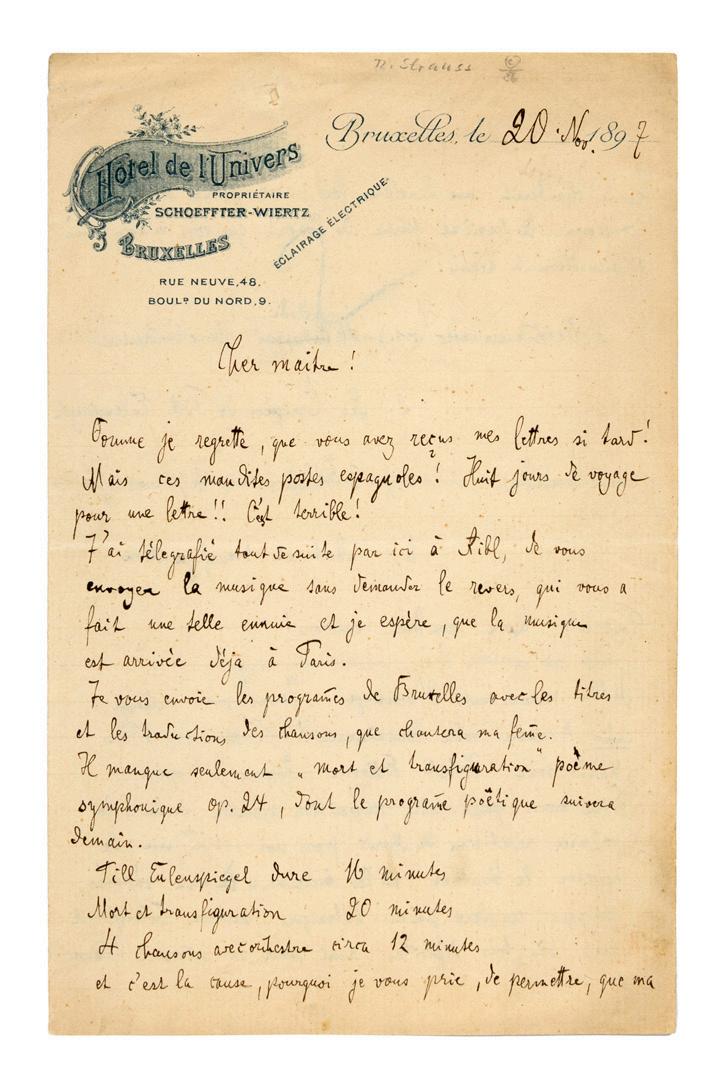 R. Strauss
Bruxelles, le 20 Nov. 1897
Hôtel de l'Univers
PROPRIÉTAIRE
SCHOEFFTER-WIERTZ
BRUXELLES
ÉCLAIRAGE ÉLECTRIQUE.
RUE NEUVE, 48.
BOULD DU NORD, 9.
Cher maitre !
Comme je regrette, que vous avez reçus mes lettres si tard !
Mais ces maudites postes espagnoles ! Huit jours de voyage
pour une lettre !! C'est terrible !
J'ai télegrafié tout de suite par ici à Aibl, de vous
envoyer la musique sans demander le revers, qui vous a
fait une telle ennuie et je espère, que la musique
est arrivée déja à Paris.
Je vous envoie les programmes de Bruxelles avec les titres
et les traductions des chansons, que chantera ma femme.
Il manque seulement „mort et transfiguration" poème
symphonique op. 24, dont le programme poëtique suivera
demain.
Till Eulenspiegel dure 16 minutes
Mort et transfiguration 20 minutes
4 chansons avec orchestre circa 12 minutes
et c'est la cause, pourquoi je vous prie, de permettre, que ma